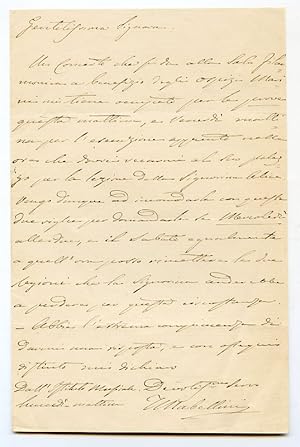 Gentilissima Signora.
Un Concerto che si dà alla Sala Filar
monica a benefizio degli Ospizi Mari
ni mi tiene occupato per le prove
questa mattina, e Venerdì matti
na per l'esecuzione appunto nelle
ore che dovrei recarmi al suo palaz
zo per la lezione della Signorina
Vengo dunque ad incomodarla con queste
due righe per domandarle se Mercoledì
alle due, e il Sabato egualmente
a quell'ora posso rimettere le due
lezioni che la Signorina andrebbe
a perdere per questa circostanza.
Abbia l'estrema compiacenza di
darmi una risposta, e con ossequio
distinto mi dichiaro
Dall'Istituto Musicale Devotissimo
lunedì mattina Mabellini